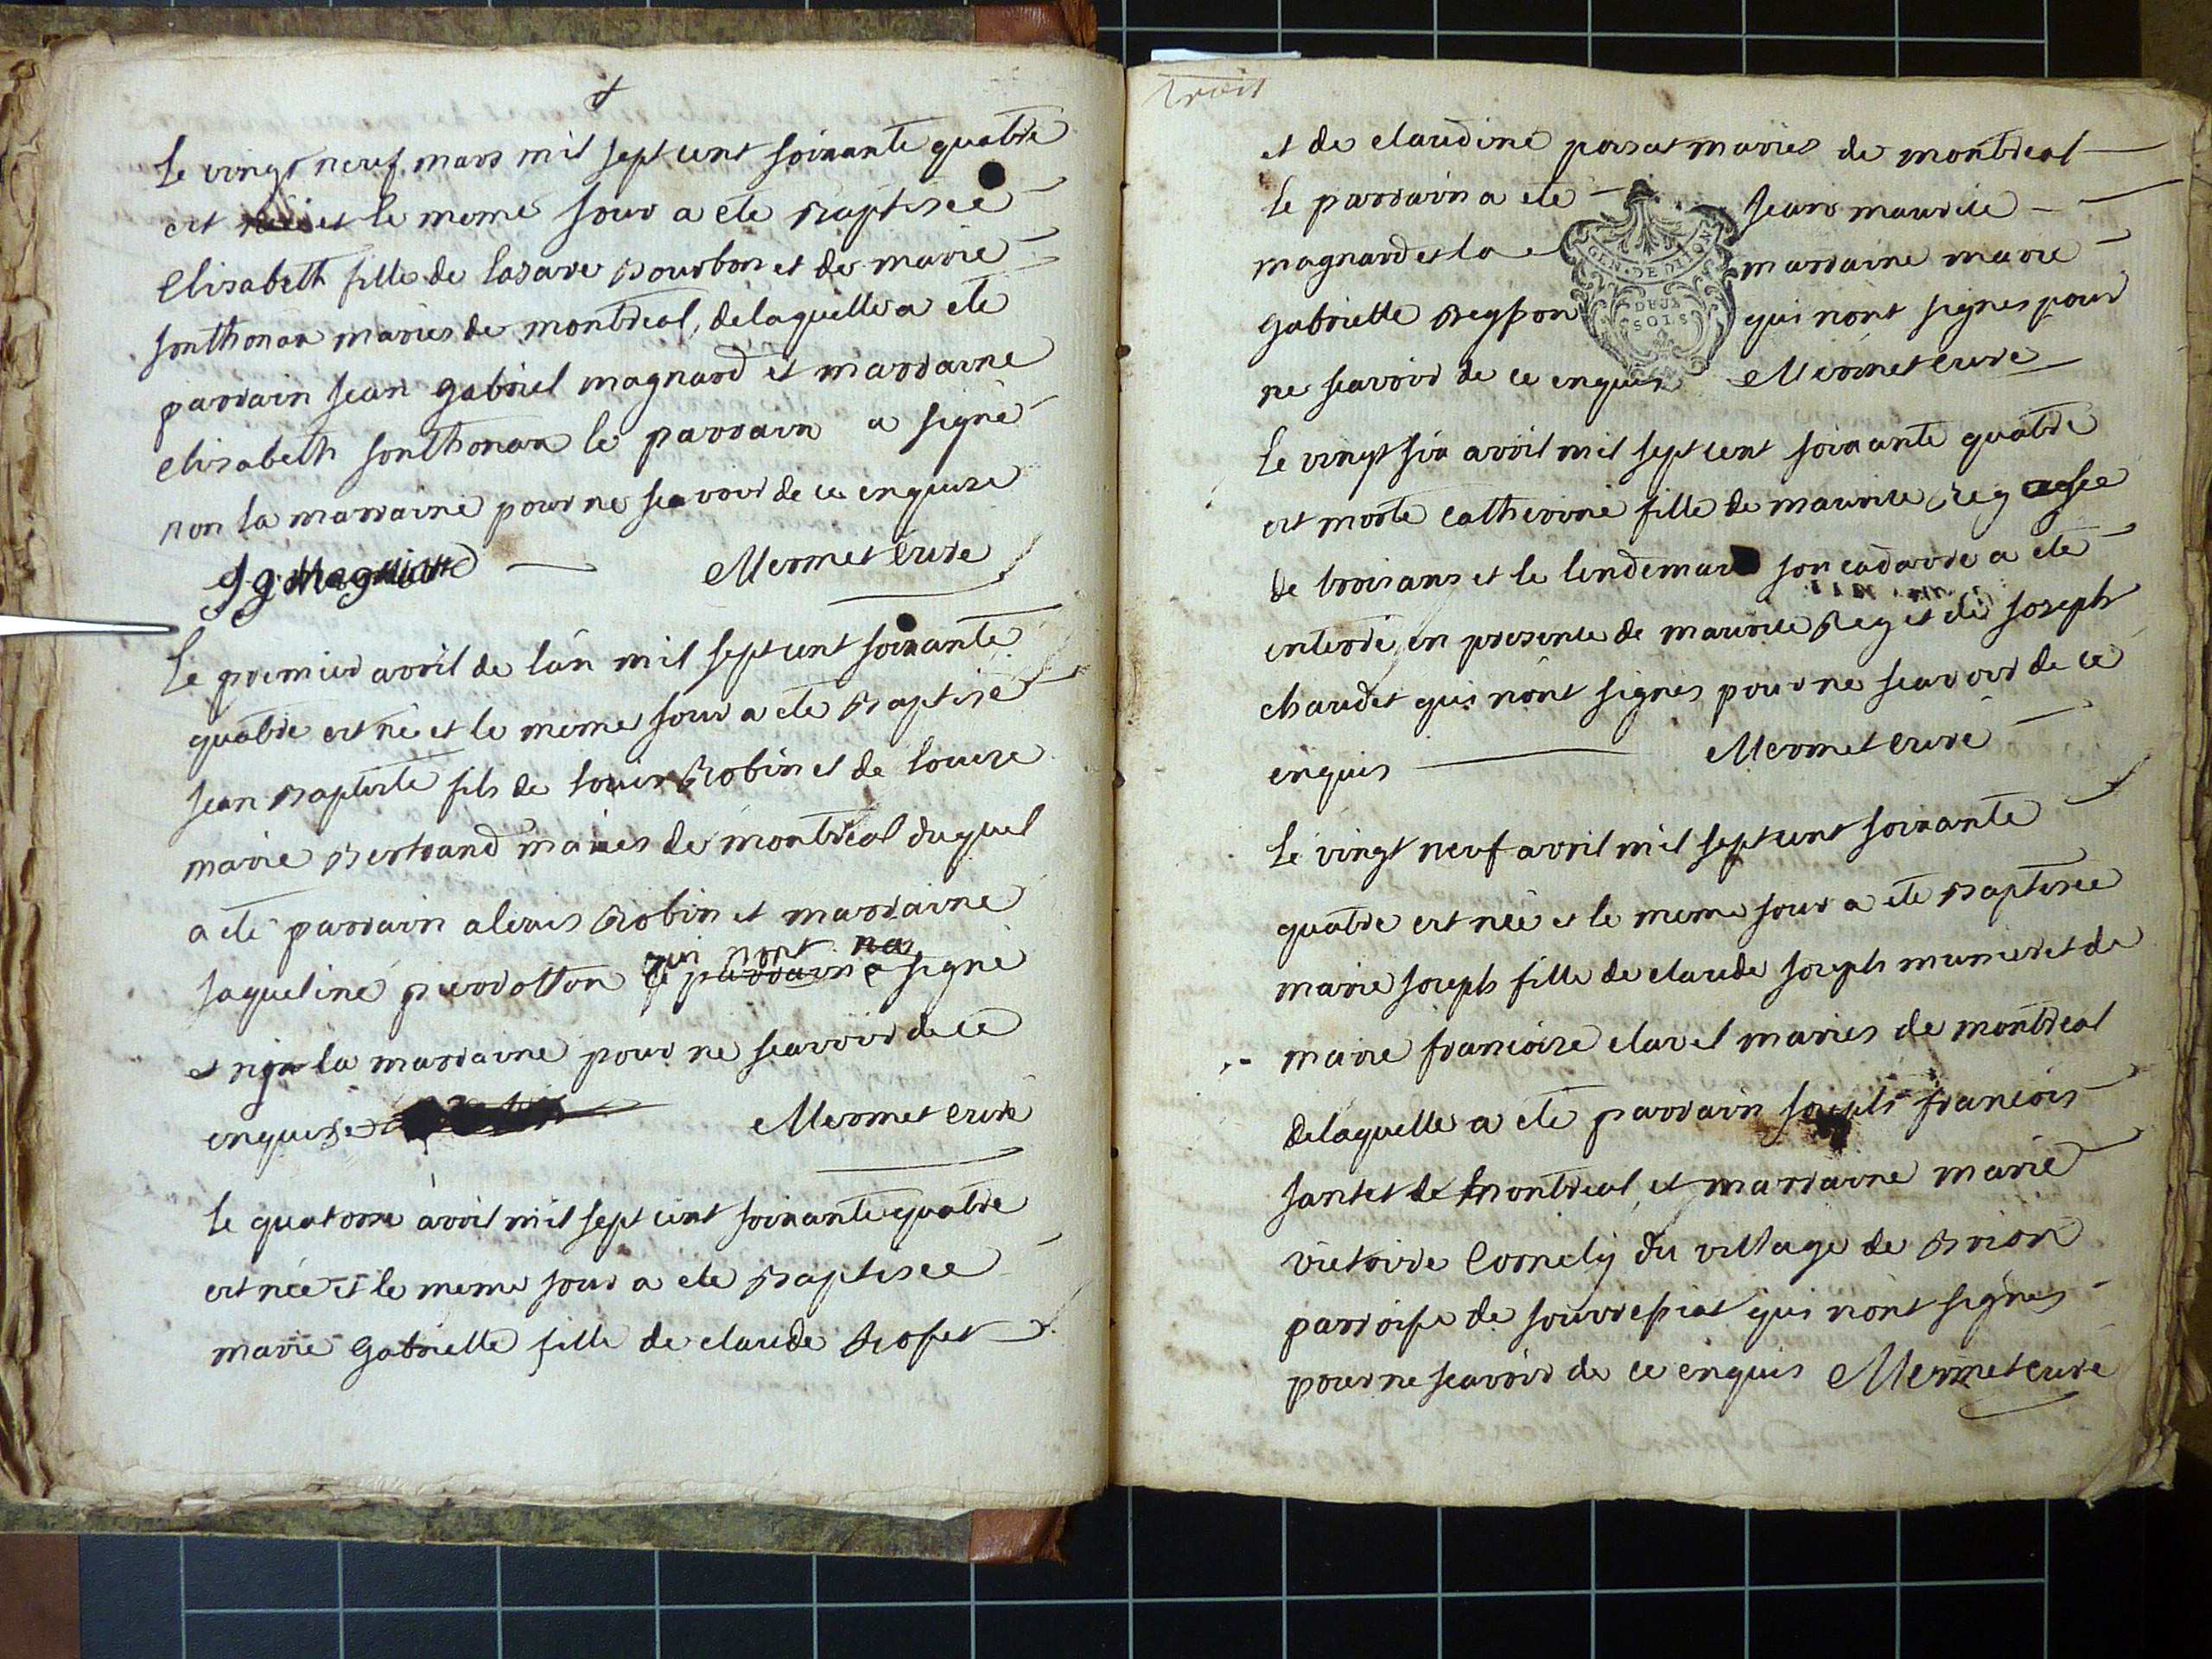 Le vingt neuf mars mil sept cent soixante quatre
est née et le meme jour a ete Baptisée
Elisabeth fille de lasare Bourbon et de marie
sonthonax mariés de montreal, delaquelle a ete
parrain jean gabriel magnard et marraine
elisabeth sonthonax le parrain a signé
non la marraine pour ne scavoir de ce enquise
J g Magniard Mermet curé
Le premier avril de lân mil sept cent soixante
quatre est né et le meme jour a ete Baptisé
jean Baptiste fils de louis Robin et de louise
marie Bertrand mariés de montreal duquel
a eté parrain alexis Robin et marraine
qui nont
jaqueline pierrotton le parrain a signé
et non la marraine pour ne scavoir de ce
enquise Mermet curé
Le quatorze avril mil sept cent soixante quatre
est née et le meme jour a ete Baptisée
marie Gabrielle fille de claude Rosset
trois
et de claudine mariés de montreal
le parrain a ete jean maurice
magnard et la marraine marie
GEN. DE DIJON
DEUX
SOLS
gabrielle qui nónt signés pour
ne scavoir de ce enquis Mermet curé
Le vingt six avril mil sept cent soixante quatre
est morte catherine fille de maurice Rey agée
de trois ans et le lendemain son cadavre a eté
enterré en presence de maurice Rey et de joseph
chaudet qui nónt signés pour ne scavoir de ce
enquis Mermet curé
Le vingt neuf avril mil sept cent soixante
quatre est née et le meme jour a ete Baptisée
marie joseph fille de claude joseph munier et de
marie francoise clavel mariés de montreal
delaquelle a eté parrain joseph francois
jantet de montreal et marraine marie
victoire Cornely du village de Brion
parroisse de qui nónt signés
pour ne scavoir de ce enquis Mermet curé